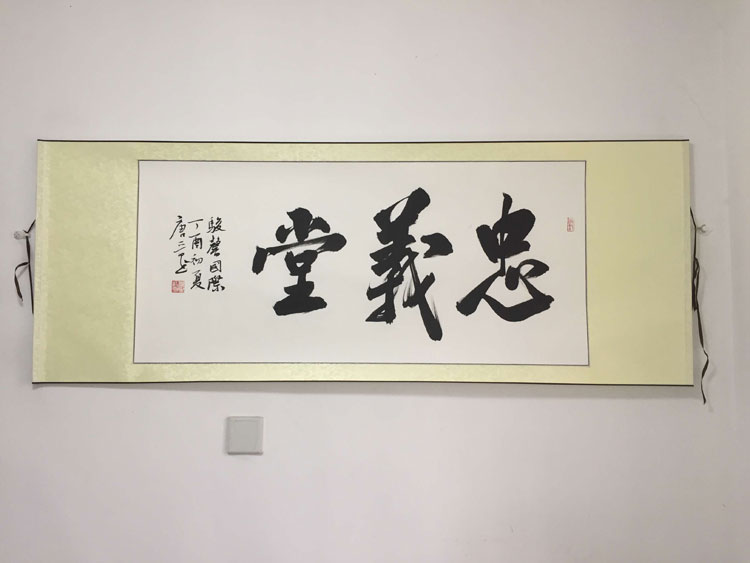 忠義堂
駿馨國際
丁酉初夏
唐三